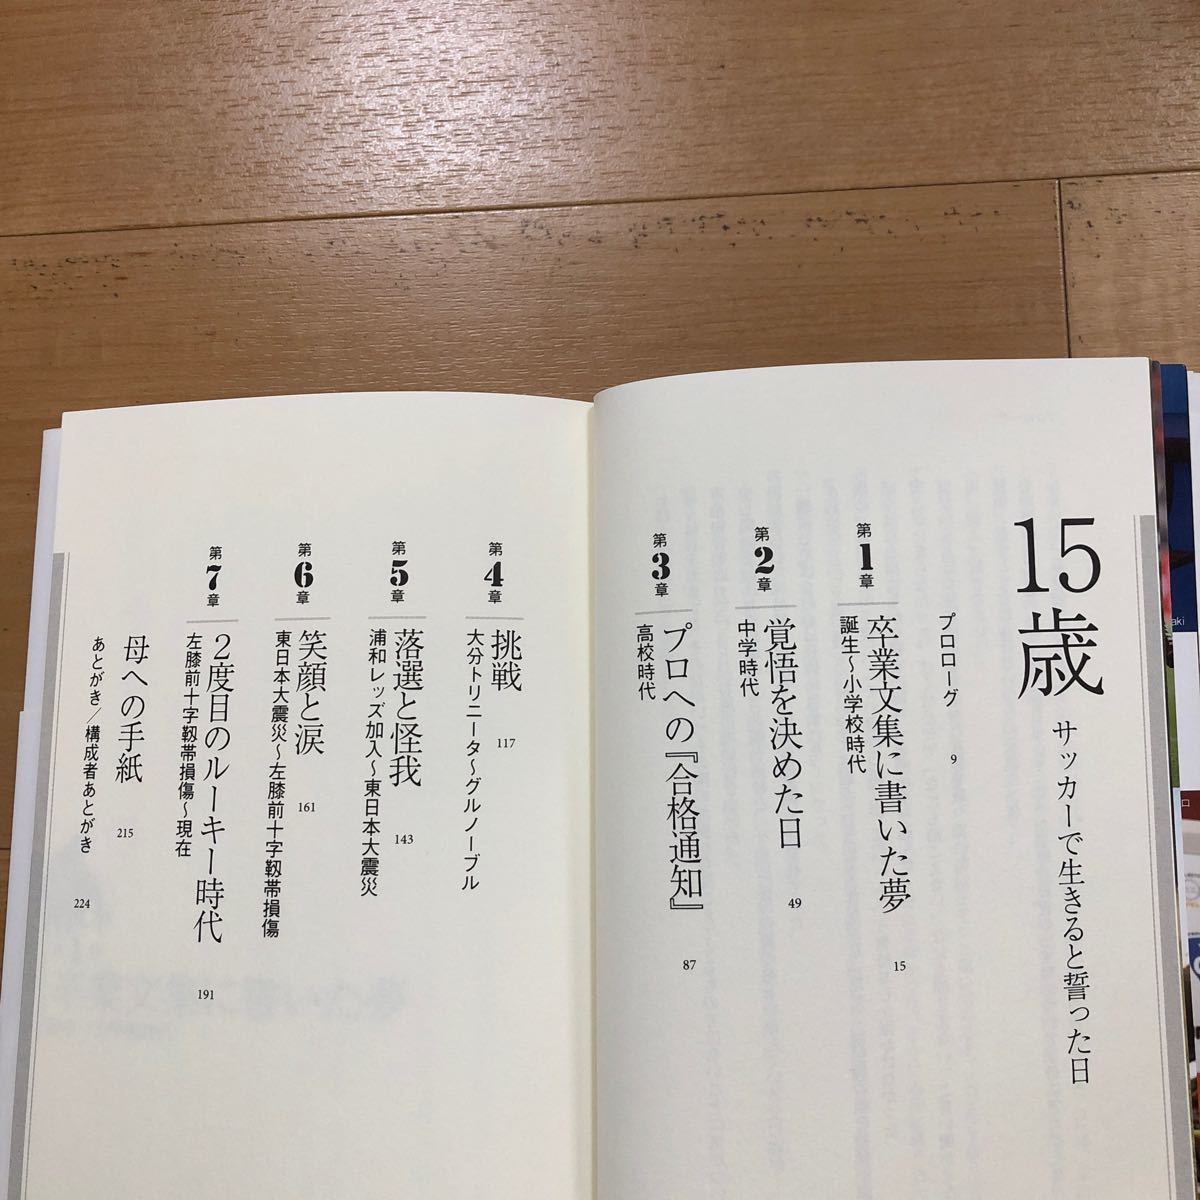 15歳
サッカーで生きると誓った日
プロローグ 9
第1章
卒業文集に書いた夢 15
誕生〜小学校時代
第2章
覚悟を決めた日 49
中学時代
第3章
プロへの『合格通知』 87
高校時代
第4章
挑戦 117
大分トリニータ〜グルノーブル
第5章
落選と怪我 143
浦和レッズ加入〜東日本大震災
第6章
笑顔と涙 161
東日本大震災〜左膝前十字靱帯損傷
第7章
2度目のルーキー時代 191
左膝前十字靱帯損傷〜現在
母への手紙 215
あとがき/構成者あとがき 224
aki